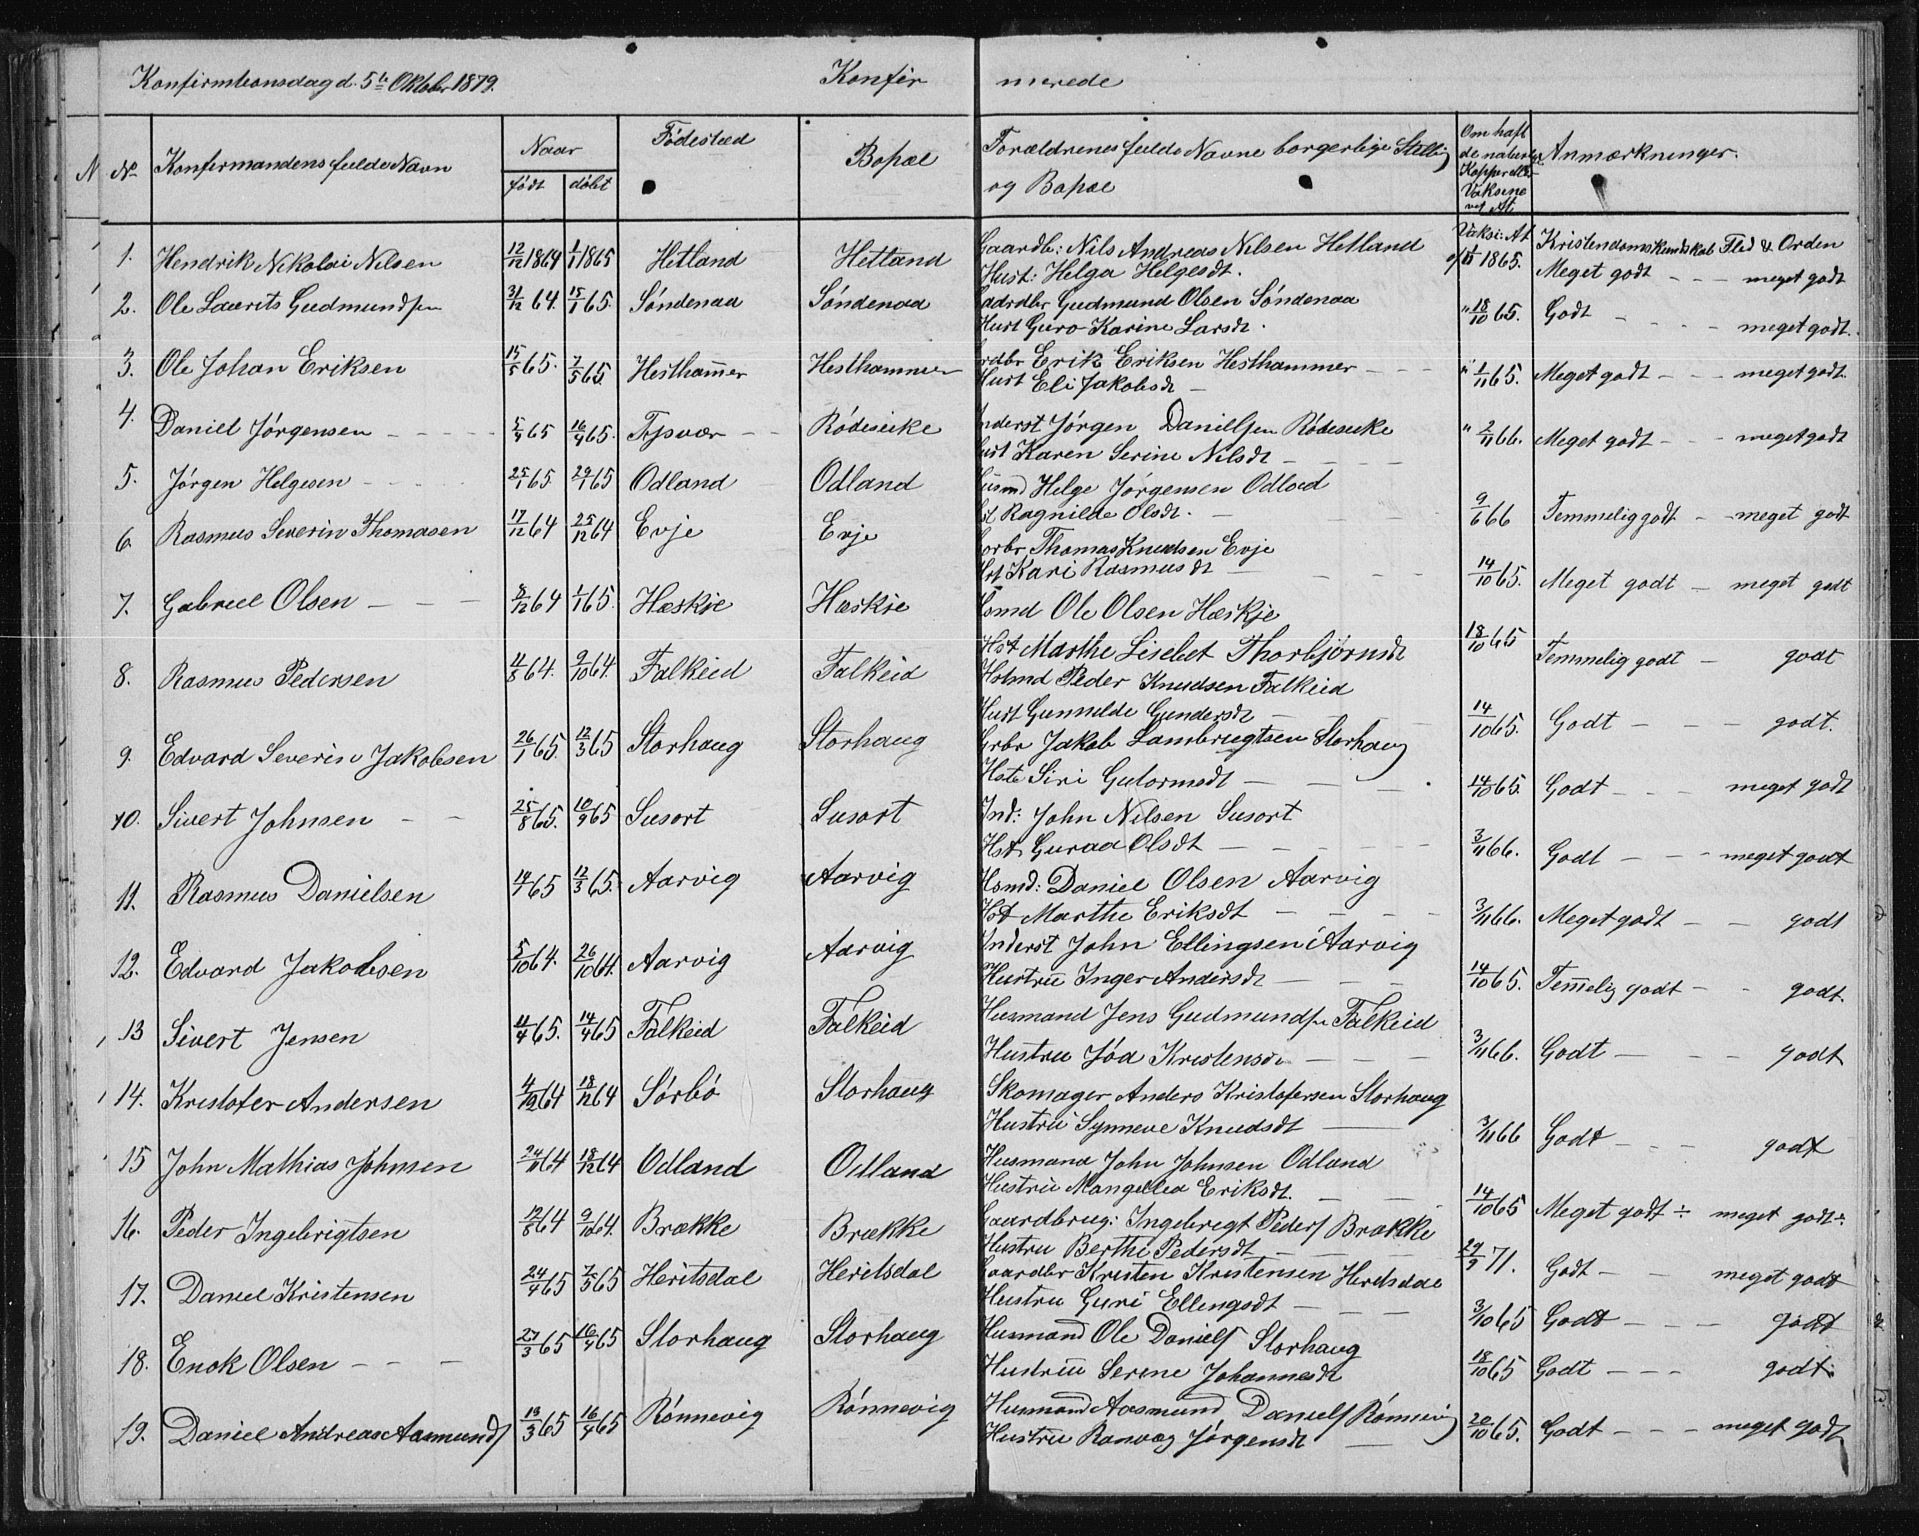 Konfirmtionsdag d. 5te Oktober 1879. Konfir merede
No Konfirmandens fulde Navn Naar født døbt Fødested Bopæl Forældrenes fulde Navne borgerlige Stilling og Bopæl Om haft de naturl. Kopper ell. Vaksine Anmærkninger.
1. Hendrik Nikolai Nilsen 12/12 1864 1/1 1865 Hetland Hetland Gaardbr: Nils Andreas Nilsen Hetland Vaksi: At 1865. Kristendomskundskab Flid & Orden
Hust: Helga Helgesdt. Meget godt - - - meget godt
2. Ole Laurits Gudmundsen 31/12 64. 15/1 65. Søndenaa Søndenaa Gaardbr Gudmund Olsen Søndenaa " 18/10 65. Godt - - - - meget godt.
Hust Guro Karine Larsdt.
3. Ole Johan Eriksen 15/5 65. 7/5 65. Hesthammer Hesthammer Grdbr Erik Eriksen Hesthammer - - - " 1/11 65. Meget godt - - - meget godt.
Hust Eli Jakobsdt -
4. Daniel Jørgensen - - - - 5/4 65 16/4 65. Tysvær - - Rødseike Inderst Jørgen Danielsen Rødseike " 2/11 66. Meget godt - - - meget godt
Hust Karen Serine Nilsdt - - - -
5. Jørgen Helgesen - - - - 25/1 65. 29/1 65 Odland Odland Husmd Helge Jørgensen Odland 9/6 66 Temmelig godt - - meget godt
Hst Ragnilde Olsdt. - - -
6. Rasmus Severin Thomasen 17/12 64 25/12 64 Evje Evje Gorbr Thomas Knudsen Evje 14/10 65. Meget godt - meget godt
Hst Kari Rasmusdt - - - -
7. Gabriel Olsen - - - 8/12 64 1/1 65. Hæskje Hæskje Hsmd Ole Olsen Hæskje 18/10 65 Temmelig godt - godt
Hst Marthe Lisebet Thorbjørnsdt
8. Rasmus Pedersen 4/8 64. 9/10 64. Falkeid Falkeid Hsmd Peder Knudsen Falkeid 14/10 65. Godt - - - godt.
Hust Gunnilde Gundersdt - -
9. Edvard Severin Jakobsen 26/1 65. 12/3 65 Storhaug Storhaug Grbr Jakob Lambrigtsen Storhaug 14/10 65. Godt - - - meget godt
Hst Siri Gutormsdt - - -
10. Sivert Johnsen - - 25/8 65. 10/9 65 Susort Susort Ind: John Nilsen Susort 3/11 66. Godt - - - meget godt
Hst Guraa Olsdt - - - -
11. Rasmus Danielsen 14/1 65 12/3 65. Aarvig Aarvig Hsmd: Daniel Olsen Aarvig 3/11 66. Meget godt - - godt
Hst Marthe Eriksdt - - - -
12. Edvard Jakobsen 5/10 64. 26/10 64. Aarvig Aarvig Inderst John Ellingsen Aarvig 14/10 65. Temmelig godt - - godt.
Hustru Inger Andersdt - - -
13 Sivert Jensen 11/4 65. 14/4 65 Falkeid Falkeid Husmand Jens Gudmundsen Falkeid 3/11 66. Godt - - - godt
Hustru Kristensdt - - -
14. Kristofer Andersen 4/12 64 18/12 64 Sørbø Storhaug Skomager Anders Kristofersen Storhaug 3/11 66 Godt - - - godt
Hustru Synneve Knudsdt -
15 John Mathias Johnsen 24/11 64 18/12 64 Odland Odland Husmand John Johnsen Odland 14/10 65 Meget godt ÷ meget godt ÷
Hustru Mangella Eriksdt. - -
16. Peder Ingebrigtsen 12/8 64 9/10 64. Brække Brække Gaardbrug: Ingebrigt Peders Brække 29/9 71. Godt - - meget godt
Hustru Berthe Pedersdt - - -
17. Daniel Kristensen 24/4 65 7/5 65 Heritsdal Heritsdal Gaardbr Kristen Kristensen Heritsdal 3/10 65 Godt - - - godt
Hustru Guri Ellingsdt - - -
18. Enok Olsen - - - 27/3 65 16/4 65 Storhaug Storhaug Husmand Ole Daniels Storhaug 18/10 65 Godt - - - godt.
Hustru Serine Johannesdt
19. Daniel Andreas Aasmunds 13/3 65 16/4 65 Rønnevig Rønnevig Husmand Aasmund Daniels Rønnevig 20/10 65. Godt - - - meget godt
Hustru Ranvag Jørgensdt -